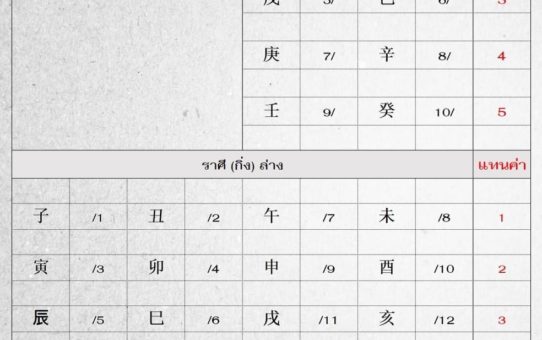 戊 5/ 己 6/ 3
庚 7/ 辛 8/ 4
壬 9/ 癸 10/ 5
ราศี (กิ่ง) ล่าง แทนค่า
子 /1 丑 /2 午 /7 未 /8 1
寅 /3 卯 /4 申 /9 酉 /10 2
辰 /5 巳 /6 戌 /11 亥 /12 3